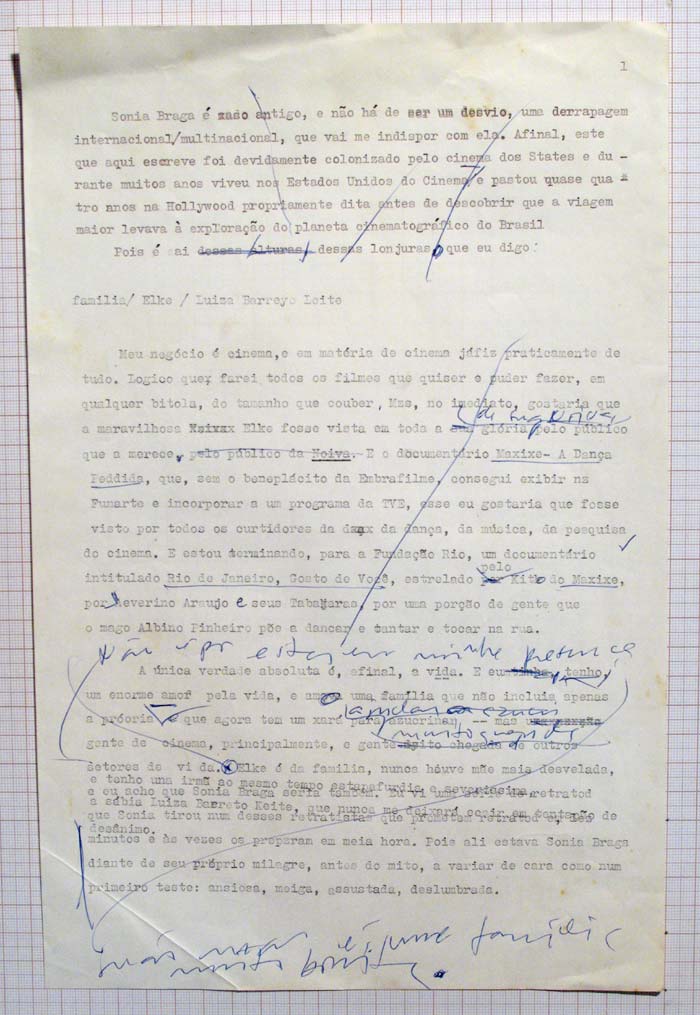 1
Sonia Braga é xaso antigo, e não há de ser um desvio, uma derrapagem
internacional/multinacional, que vai me indispor com ela. Afinal, este
que aqui escreve foi devidamente colonizado pelo cinema dos States e du -
rante muitos anos viveu nos Estados Unidos do Cinema e pastou quase qua -
tro anos na Hollywood propriamente dita antes de descobrir que a viagem
maior levava à exploração do planeta cinematográfico do Brasil
Pois é sai dessas alturas, dessas lonjuras, que eu digo:
familia/ Elke / Luiza Barreyo Leite
Meu negócio é cinema,e em matéria de cinema jáfiz praticamente de
tudo. Logico quey farei todos os filmes que quiser e puder fazer, em
qualquer bitola, do tamanho que couber, Mzs, no imediato, gostaria que
a maravilhosa Elke fosse vista em toda a sua glória pelo público
que a merece, pelo público da Noiva. E o documentário Maxixe- A Dança
Peddida, que, sem o beneplácito da Embrafilme, consegui exibir ns
Funarte e incorporar a um programa da TVE, esse eu gostaria que fosse
visto por todos os curtidores da da dança, da música, da pesquisa
do cinema. E estou terminando, para a Fundação Rio, um documentário
pelo
intitulado Rio de Janeiro, Gosto de Você, estrelado por Kito do Maxixe,
por Severino Araujo e seus Tabajaras, por uma porção de gente que
o mago Albino Pinheiro põe a dancar e cantar e tocar na rua.
Não é por estar em minha presença
A única verdade absoluta é, afinal, a vida. E eu tenho
um enorme amor pela vida, e amo uma família que não incluia apenas
a próoria e que agora tem um xará para azucrinar, -- mas
gente de cinema, principalmente, e gente de outros
setores de vi da. Elke é da familia, nunca houve mãe mais desvelada,
e tenho una irmã ao mesmo tempo estapafurdia e severissima
e eu acho que Sonia Braga seria também. Eu vi uma série de retratod
a sábia Luiza Barreto Keite, que nunca me deixará cair em tentação de
que Sonia tirou num desses retratistas que prometem retratos em
desânimo.
minutos e às vezes os preparam em meia hora. Pois ali estava Sonia Braga
diante de seu próprio milagre, antes do mito, a variar de cara como num
primeiro teste: ansiosa, meiga, assustada, deslumbrada.
família